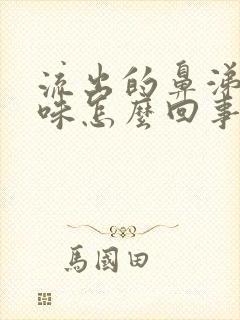 流出的鼻涕
味怎麼回事
馬國田